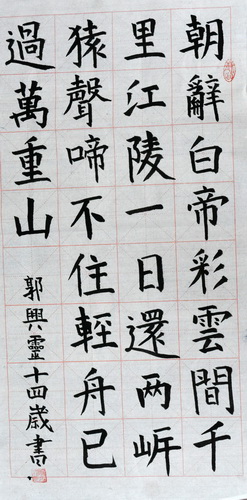 朝辭白帝彩雲間千
里江陵一日還两岍
猿聲啼不住輕舟已
過萬重山
郭興靈十四歲書